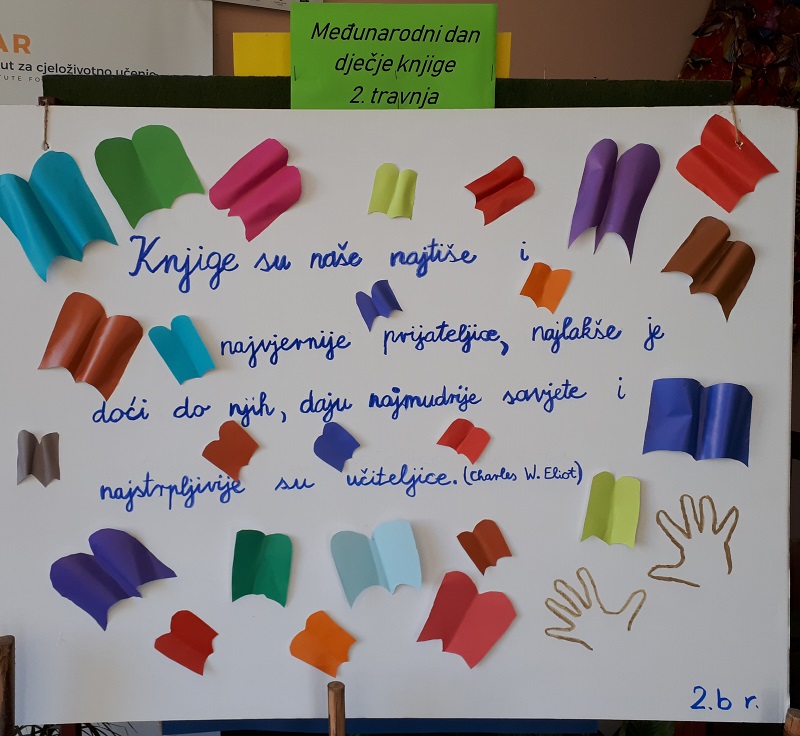 AR
ut za cjeloživotno učenje
TUTE FO
Međunarodni dan
dječje knjige
2. travnja
Knjige su naše najtiše i
najvjernije prijateljice, najlakše je
doći do njih, daju najmudrije savjete i
najstrpljivije su učiteljice. (Charles W. Eliot)
2. b r.